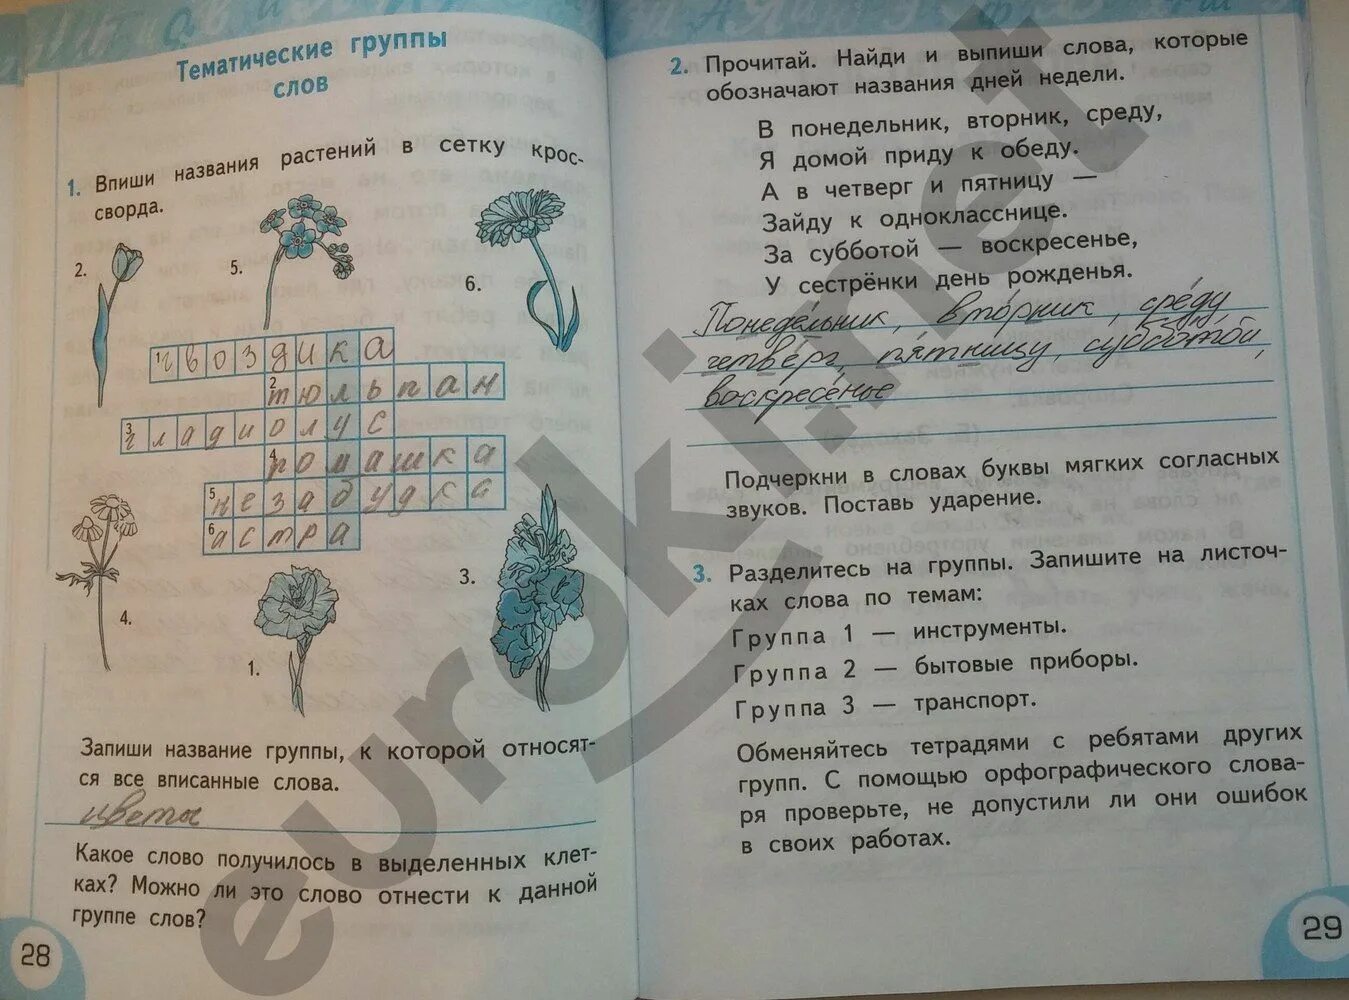 Тематические группы
слов
1. Впиши названия растений в сетку крос-
сворда.
2.
5.
6.
1 гвоздика
2 тюльпан
3 гладиолус
4 ромашка
5 незабудка
6 астра
4.
1.
3.
Запиши название группы, к которой относят-
ся все вписанные слова.
цветы
Какое слово получилось в выделенных клет-
ках? Можно ли это слово отнести к данной
группе слов?
28
2. Прочитай. Найди и выпиши слова, которые
обозначают названия дней недели.
В понедельник, вторник, среду,
Я домой приду к обеду.
А в четверг и пятницу —
Зайду к однокласснице.
За субботой — воскресенье,
У сестрёнки день рожденья.
Понедельник, вторник, среду
четверг, пятницу, субботой,
воскресенье
Подчеркни в словах буквы мягких согласных
звуков. Поставь ударение.
3. Разделитесь на группы. Запишите на листоч-
ках слова по темам:
Группа 1 — инструменты.
Группа 2 — бытовые приборы.
Группа 3 — транспорт.
Обменяйтесь тетрадями с ребятами других
групп. С помощью орфографического слова-
ря проверьте, не допустили ли они ошибок
в своих работах.
29
euroki.net